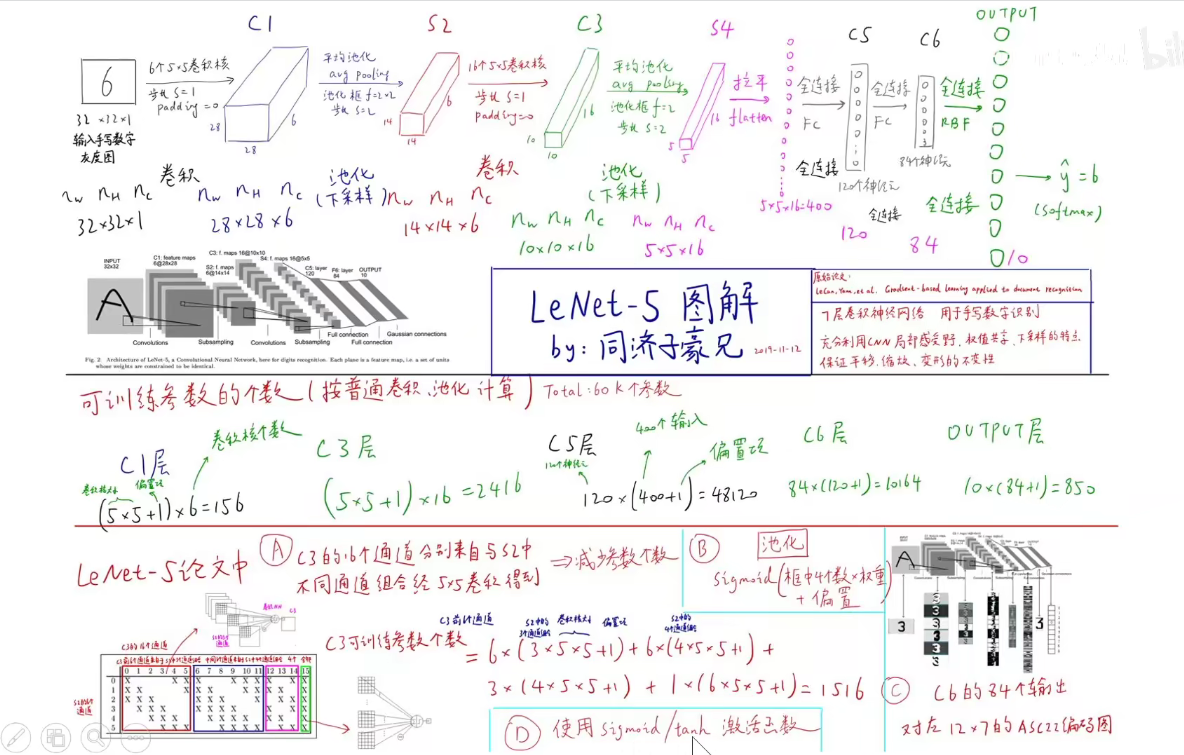 C1
S2
C3
S4
C5
C6
OUTPUT
6
6个5×5卷积核
步长S=1
padding=0
32×32×1
输入手写数字
灰度图
28
28
6
平均池化
avg pooling
池化框f=2×2
步长S=2
14
14
6
16个5×5卷积核
步长S=1
padding=0
10
10
16
平均池化
avg pooling
池化框f=2
步长S=2
5
5
16
拉平
flatten
5×5×16=400
全连接
FC
全连接
120个神经元
全连接
FC
84个神经元
全连接
RBF
ŷ=6
(softmax)
n_W n_H n_C
32×32×1
卷积
n_W n_H n_C
28×28×6
池化
(下采样)
n_W n_H n_C
14×14×6
卷积
n_W n_H n_C
10×10×16
池化
(下采样)
n_W n_H n_C
5×5×16
全连接
120
全连接
84
10
INPUT
32x32
C1: feature maps
6@28x28
S2: f. maps
6@14x14
C3: f. maps 16@10x10
S4: f. maps 16@5x5
C5: layer
120
F6: layer
84
OUTPUT
10
A
Convolutions
Subsampling
Convolutions
Subsampling
Full connection
Full connection
Gaussian connections
Fig. 2 Architecture of LeNet-5, a Convolutional Neural Network, here for digits recognition. Each plane is a feature map, i.e. a set of units
whose weights are constrained to be identical.
LeNet-5 图解
by: 同济子豪兄 2019-11-12
原始论文:
LeCun, Yann, et al. Gradient-based learning applied to document recognition
7层卷积神经网络 用于手写数字识别
充分利用CNN局部感受野、权值共享、下采样的特点
保证平移、缩放、变形的不变性
可训练参数的个数(按普通卷积、池化计算) Total:60k个参数
C1层
卷积核个数
卷积核大小
偏置项
(5×5+1)×6=156
C3层
(5×5+1)×16=2416
C5层
120个神经元
400个输入
偏置项
120×(400+1)=48120
C6层
84×(120+1)=10164
OUTPUT层
10×(84+1)=850
LeNet-5论文中
A
C3的16个通道分别来自与S2中
不同通道组合经5×5卷积得到
⇒减少参数个数
C3可训练参数个数
C3前6个通道
卷积核大小
偏置项
= 6×(3×5×5+1)+6×(4×5×5+1)+
3×(4×5×5+1) + 1×(6×5×5+1)=1516
C3的16个通道
0 1 2 3 4 5 6 7 8 9 10 11 12 13 14 15
0
1
2
3
4
5
B
池化
sigmoid(框中4个数×权重
+偏置)
A
3
3
C
C6的84个输出
对应12×7的ASC22编码图
D
使用sigmoid/tanh激活函数